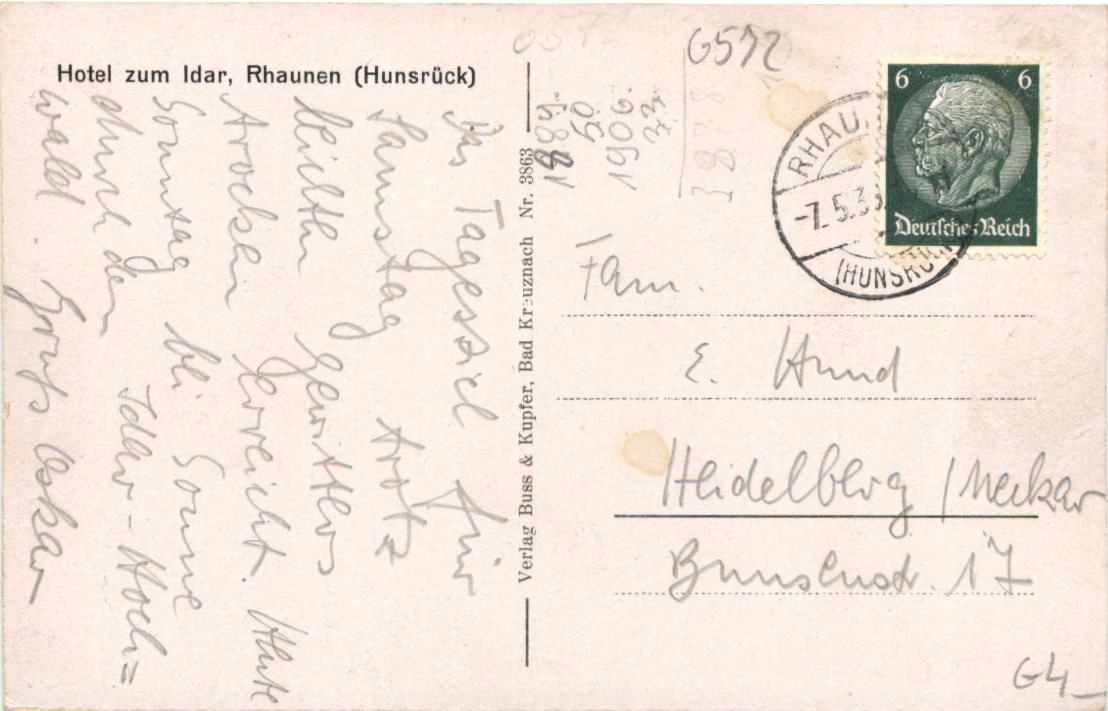 Hotel zum Idar, Rhaunen (Hunsrück)
Das Tagesziel für
Samstag trotz
leichten Gewitters
trocken erreicht. Heute
Sonntag bei Sonne
durch den Idar-Hoch=
wald. Gruß Oskar
Verlag Buss & Kupfer, Bad Kreuznach Nr. 3863
G572
3878
6 6
Deutsches Reich
RHAU
-7.5.3
(HUNSRÜCK
Fam.
E. Hund
Heidelberg / Neckar
Bunsenstr. 17
G4-